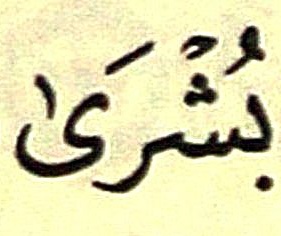 بُشْرَىٰ